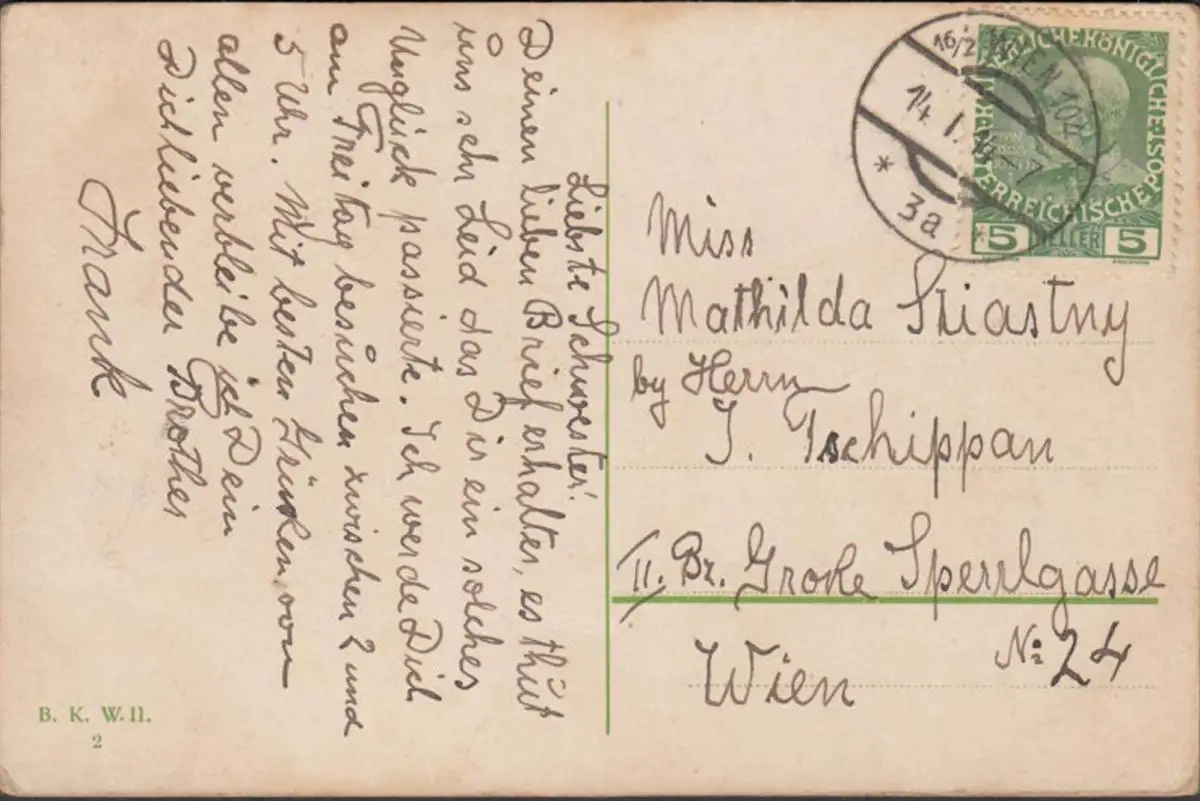 Liebste Schwester!
Deinen lieben Brief erhalten, es thut
uns sehr Leid das Dir ein solches
Unglück passierte. Ich werde Dich
am Freitag besuchen zwischen 2 und
5 Uhr. Mit besten Grüßen von
allen verbleibe ich Dein
Dichliebender Brother
Frank
Miss
Mathilda Stiastny
by Herrn
J. Tschippan
II. Bz. Große Sperrlgasse
No 24
Wien
16/2 WIEN 102
14. I.
* 3a
KAISERLICHE KÖNIGLICHE ÖSTERREICHISCHE POST
5 HELLER 5
B. K. W. II.
2